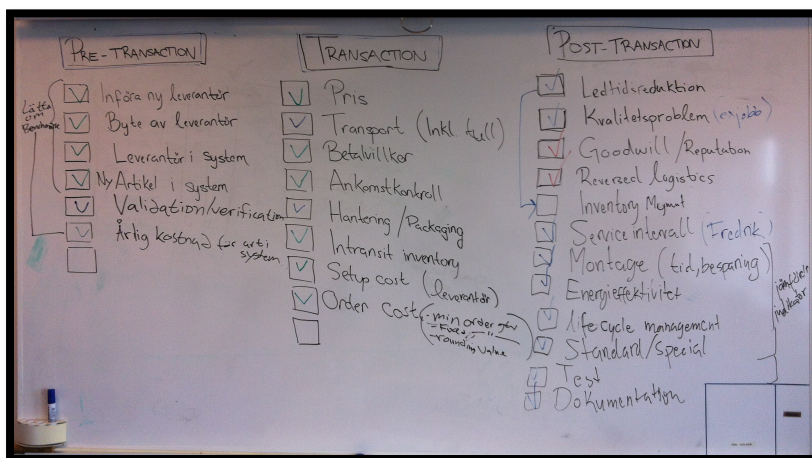 PRE-TRANSACTION
Införa ny leverantör
Byte av leverantör
Leverantör i system
Ny Artikel i system
Validation/verification
Årlig kostnad för arti
system
Lätta
om
TRANSACTION
Pris
Transport (Inkl. tull)
Betalvillkor
Ankomstkontroll
Hantering/Packaging
Intransit inventory
Setup cost (leverantör)
Order cost (-min order
-Fixed
-rounding value
POST-TRANSACTION
Ledtidsreduktion
Kvalitetsproblem (exjobb)
Goodwill/Reputation
Reverzed logistics
Inventory Mgmnt
Service intervall (Fredrik)
Montage (tid, besparing)
Energieffektivitet
life cycle management
Standard/Special
Test
Dokumentation
indikator